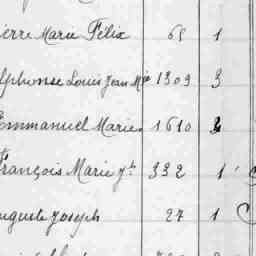 ierre Marie Félix 65 1
lphonse Louis Jean Mie 1309 3
Emmanuel Marie 1610
François Marie Jh 332 1
uguste Joseph 27 1